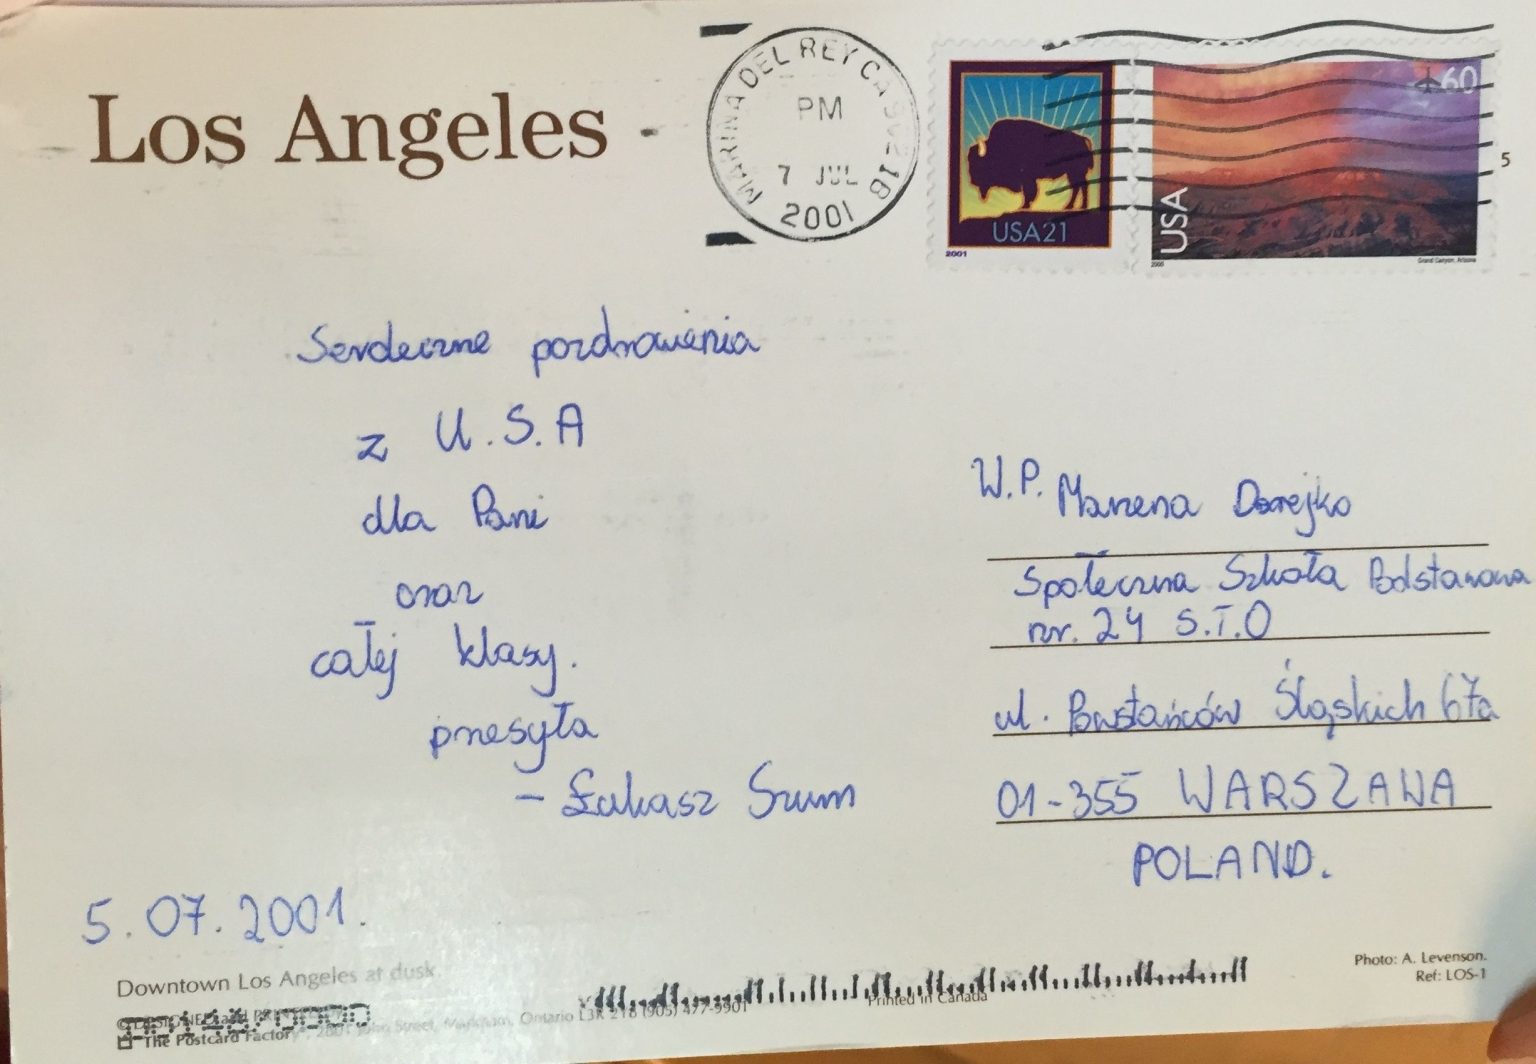 Los Angeles
MARINA DEL REY CA
PM
7 JUL
2001
USA21
2001
60
USA
2000
Grand Canyon, Arizona
5
Serdeczne pozdrowienia
z U.S.A
dla Pani
oraz
całej klasy.
przesyła
- Łukasz Szum
5.07.2001.
W.P. Marzena Darejko
Społeczna Szkoła Podstawowa
nr. 24 S.T.O
ul. Powstańców Śląskich 67a
01-355 WARSZAWA
POLAND.
Downtown Los Angeles at dusk.
The Postcard Factory
John Street, Markham, Ontario L3R 2T8 (905) 477-9901
Printed in Canada
Photo: A. Levenson.
Ref: LOS-1